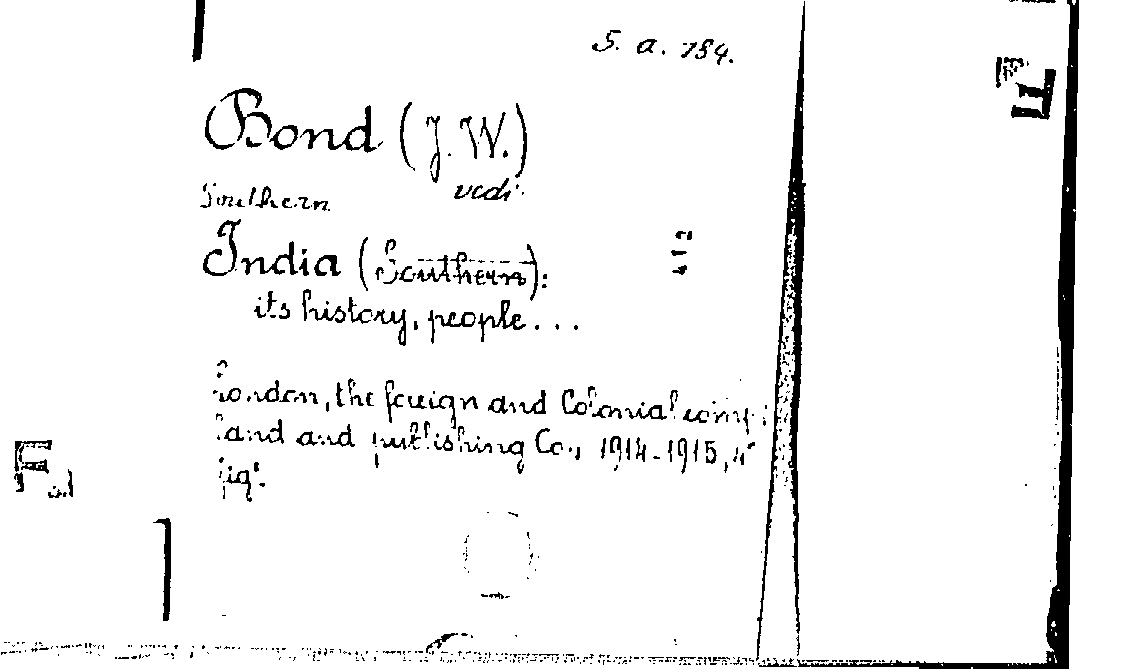 S. a. 784.
Bond (J. W.)
vedi
Southern
India (Southern):
its history, people...
London, the foreign and Colonial comp:
and and publishing Co., 1914-1915, 4°
fig.